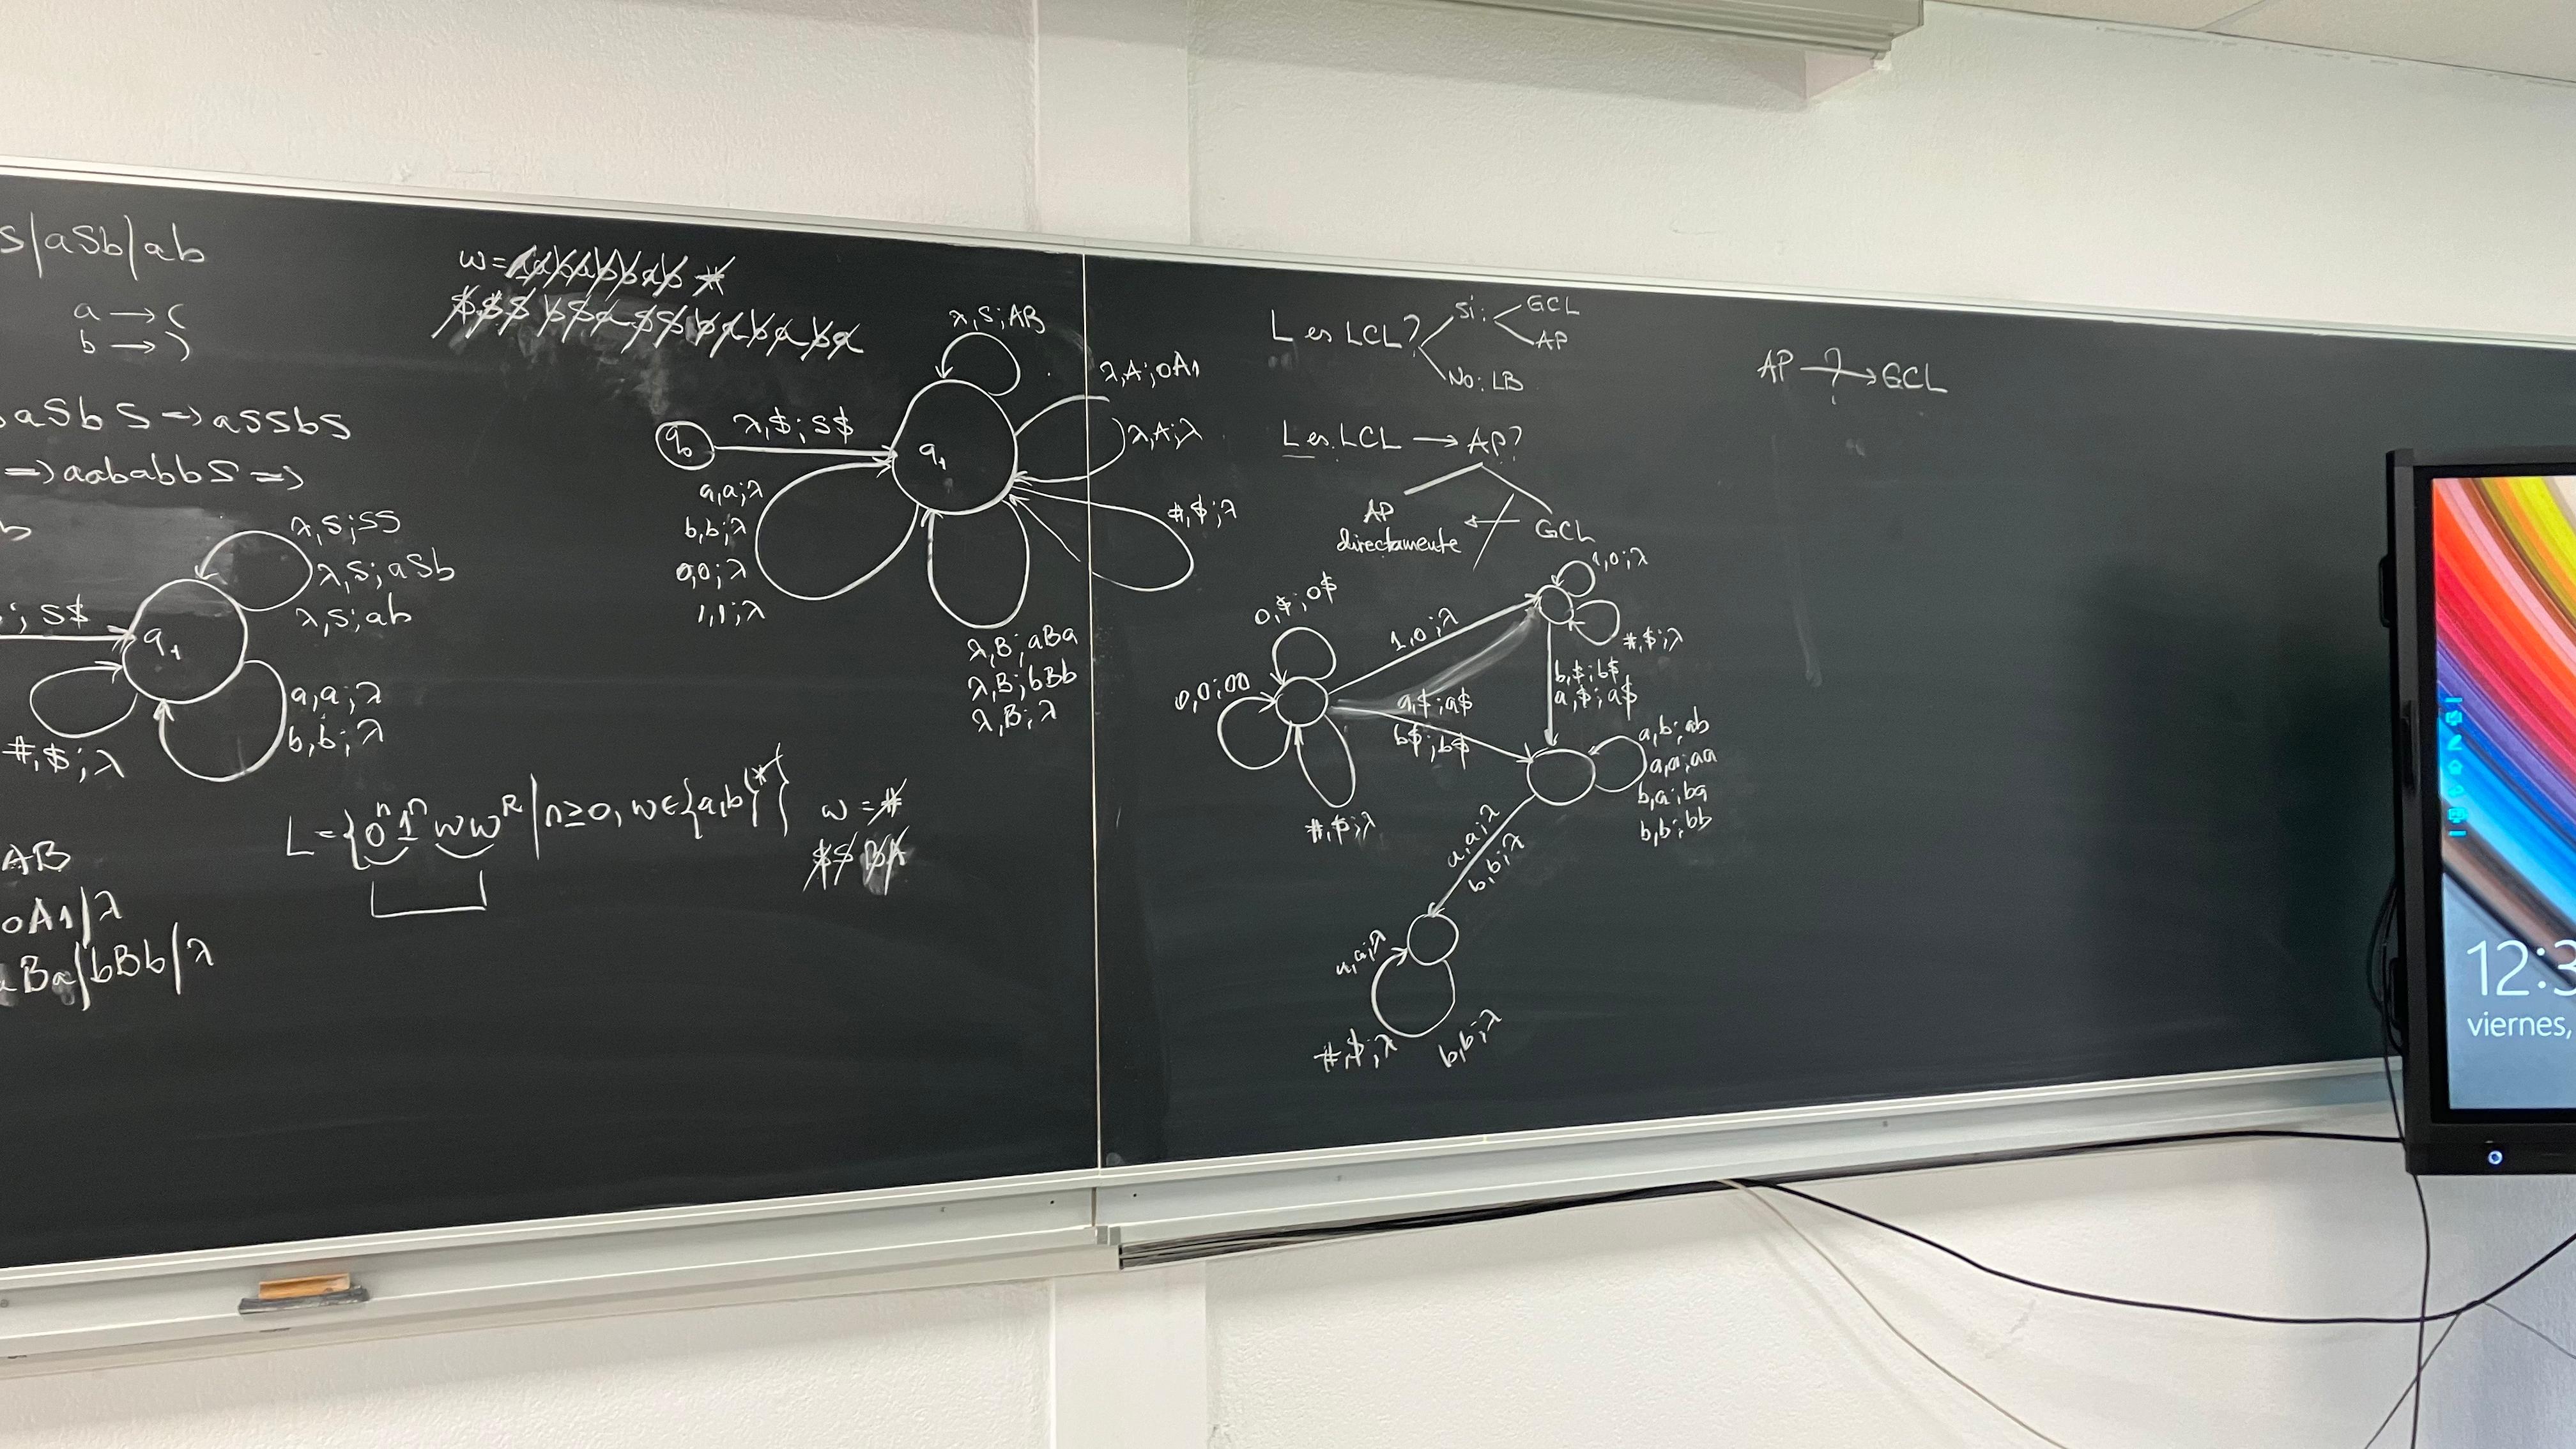 S|aSb|ab
a → (
b → )
aSbS ⇒ aSSbS
⇒ aababbS ⇒
b
λ,S;SS
λ,S;aSb
λ,S;ab
; S$
q₁
a,a;λ
b,b;λ
#,$;λ
AB
0A1|λ
aBa|bBb|λ
λ,S;AB
λ,A;0A1
λ,A;λ
λ,$;S$
q₁
#,$;λ
a,a;λ
b,b;λ
0,0;λ
1,1;λ
λ,B;aBa
λ,B;bBb
λ,B;λ
L={0ⁿ1ⁿww^R|n≥0, w∈{a,b}*}
w = #
L es LCL?
Si:
GCL
AP
No: LB
L es LCL → AP?
AP
directamente
GCL
AP →? GCL
0,$;0$
0,0;00
#,$;λ
1,0;λ
1,0;λ
#,$;λ
a,$;a$
b$;b$
b,$;b$
a,$;a$
a,b;ab
a,a;aa
b,a;ba
b,b;bb
a,a;λ
b,b;λ
a,a;λ
#,$;λ
b,b;λ
viernes,